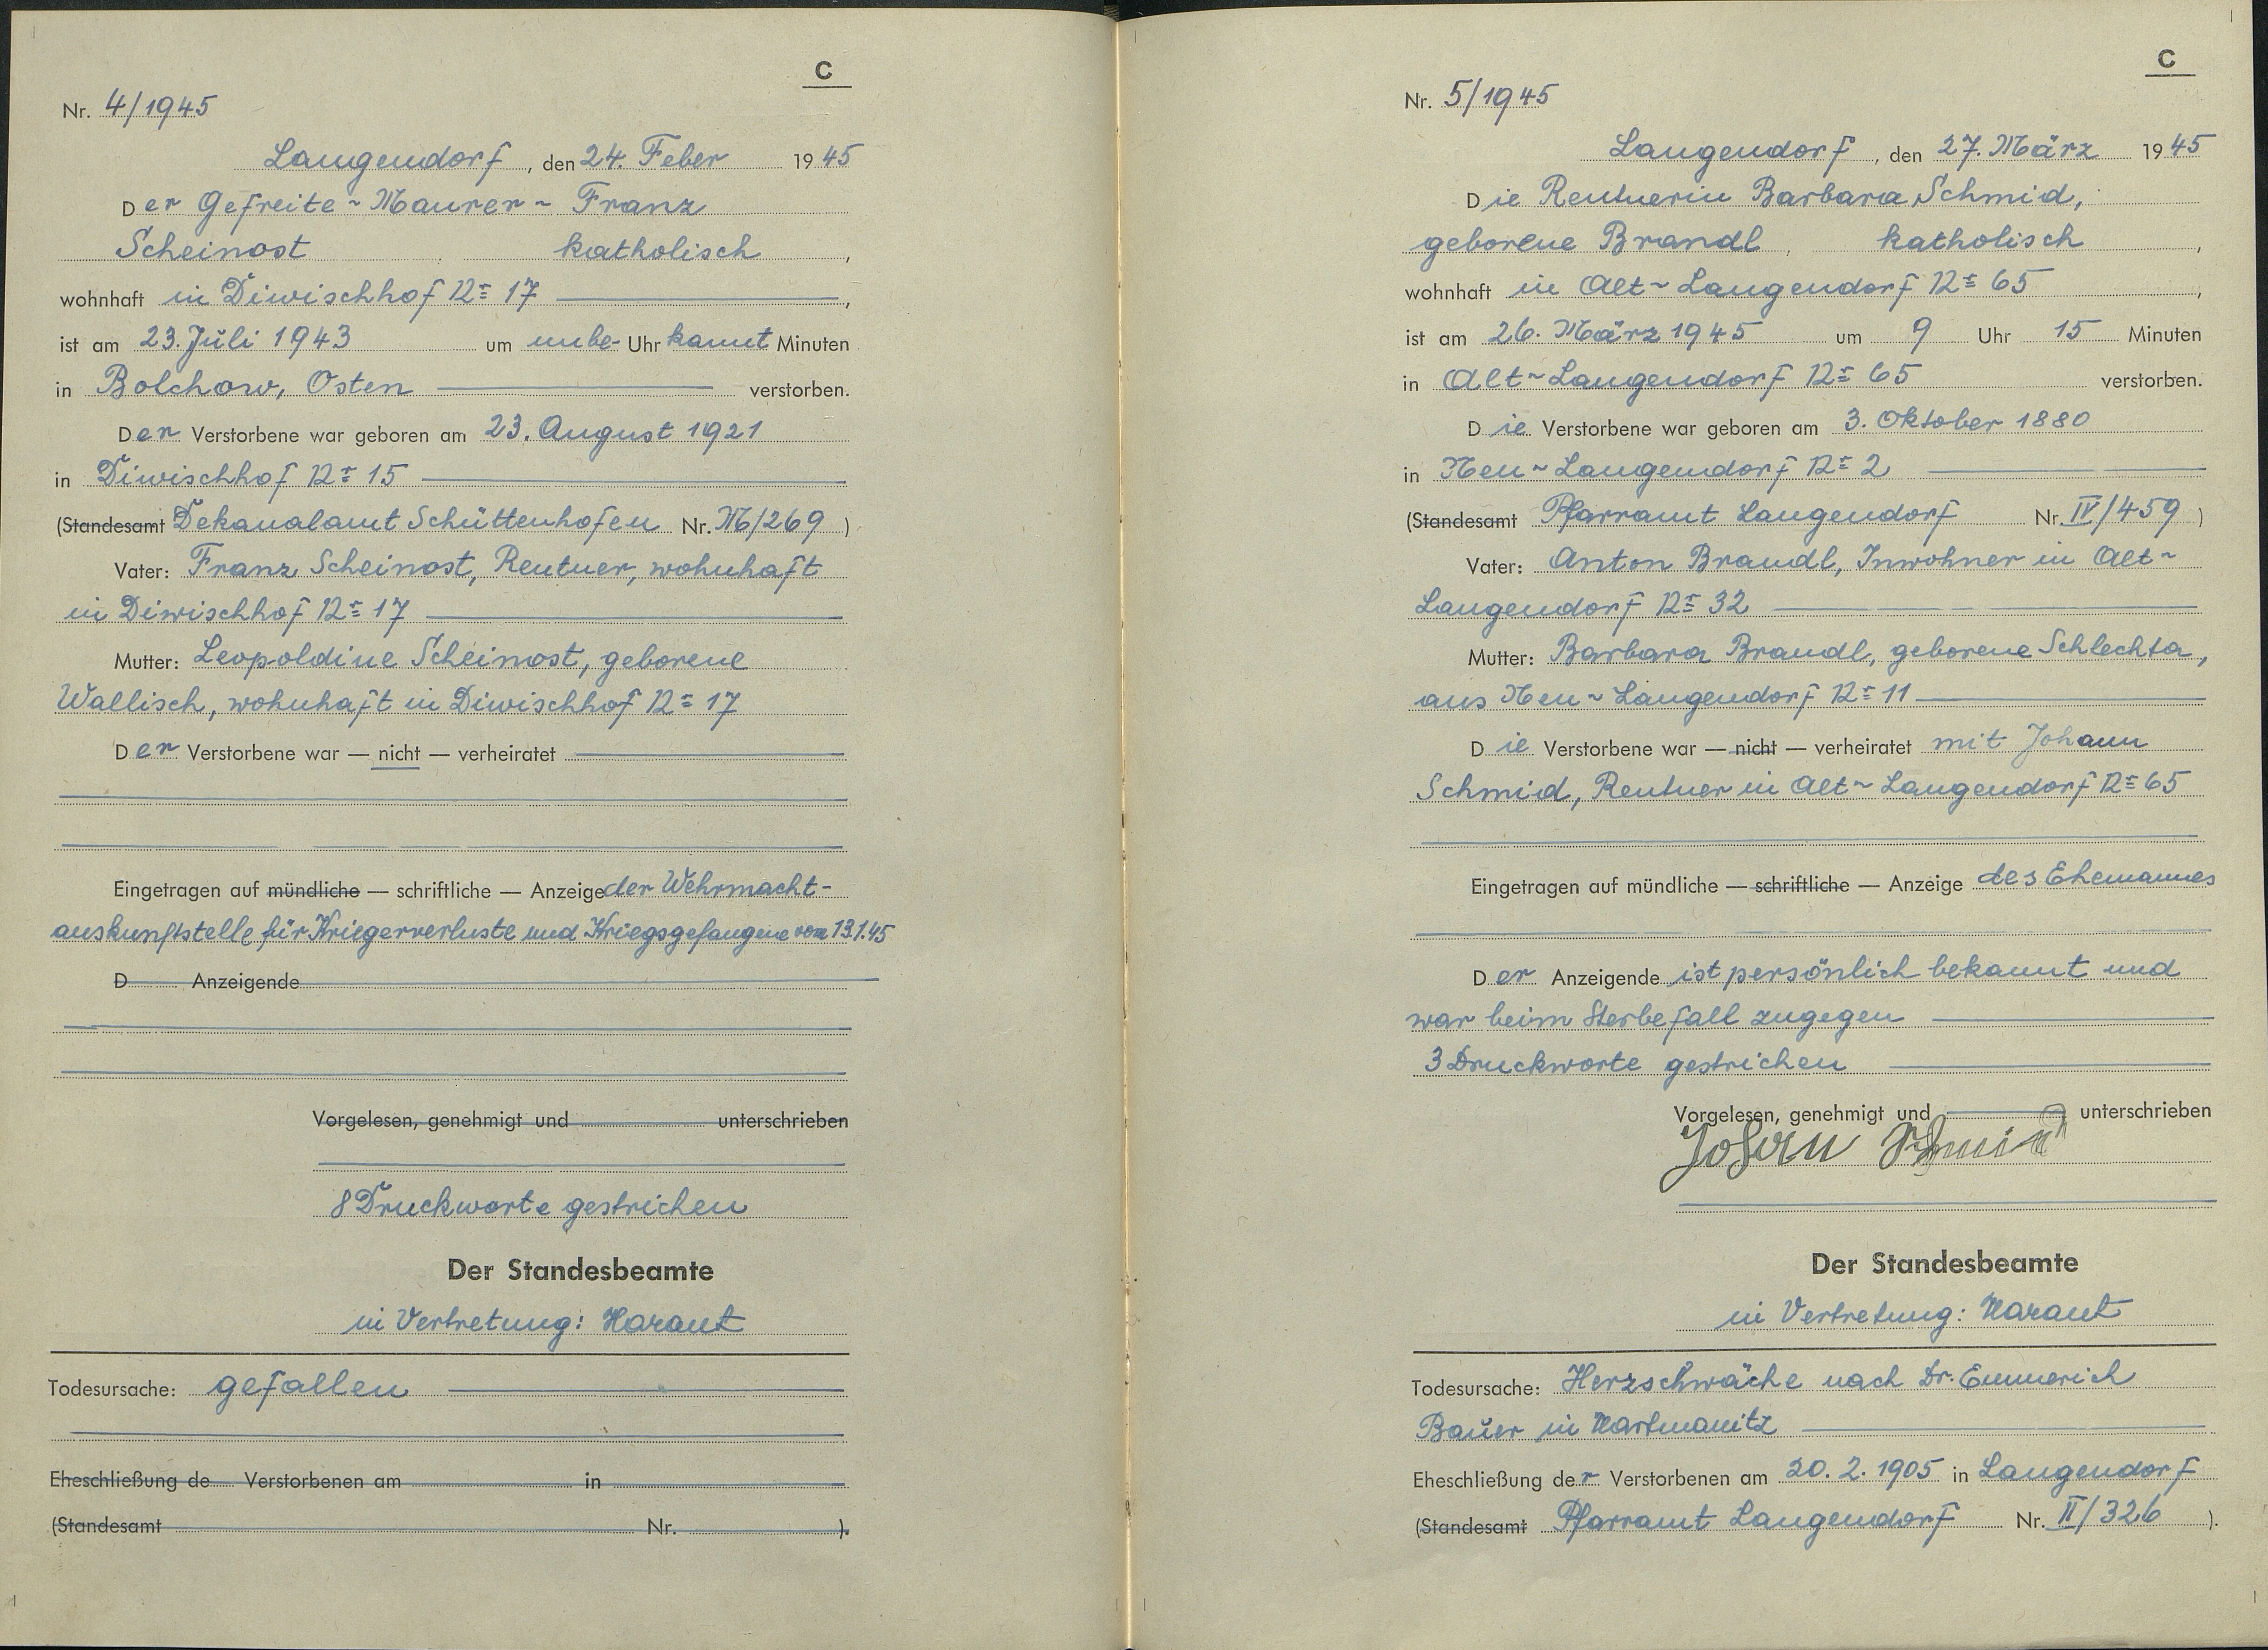 C
Nr. 4/1945
Langendorf, den 24. Feber 1945
Der Gefreite ~ Maurer ~ Franz
Scheinost katholisch,
wohnhaft in Diwischhof № 17,
ist am 23. Juli 1943 um unbe- Uhr kannt Minuten
in Bolchow, Osten verstorben.
Der Verstorbene war geboren am 23. August 1921
in Diwischhof № 15
(Standesamt Dekanalamt Schüttenhofen Nr. /269)
Vater: Franz Scheinost, Rentner, wohnhaft
in Diwischhof № 17
Mutter: Leopoldine Scheinost, geborene
Wallisch, wohnhaft in Diwischhof № 17
Der Verstorbene war — nicht — verheiratet
Eingetragen auf mündliche — schriftliche — Anzeige der Wehrmacht-
auskunftstelle für Kriegerverluste und Kriegsgefangene vom 13.1.45
D Anzeigende
Vorgelesen, genehmigt und unterschrieben
8 Druckworte gestrichen
Der Standesbeamte
in Vertretung: Harant
Todesursache: gefallen
Eheschließung de Verstorbenen am in
(Standesamt Nr. ).
C
Nr. 5/1945
Langendorf, den 27. März 1945
Die Rentnerin Barbara Schmid,
geborene Brandl, katholisch,
wohnhaft in Alt ~ Langendorf № 65,
ist am 26. März 1945 um 9 Uhr 15 Minuten
in Alt ~ Langendorf № 65 verstorben.
Die Verstorbene war geboren am 3. Oktober 1880
in Neu ~ Langendorf № 2
(Standesamt Pfarramt Langendorf Nr. IV/459)
Vater: Anton Brandl, Inwohner in Alt ~
Langendorf № 32
Mutter: Barbara Brandl, geborene Schlechta,
aus Neu ~ Langendorf № 11
Die Verstorbene war — nicht — verheiratet mit Johann
Schmid, Rentner in Alt ~ Langendorf № 65
Eingetragen auf mündliche — schriftliche — Anzeige des Ehemannes
Der Anzeigende ist persönlich bekannt und
war beim Sterbefall zugegen
3 Druckworte gestrichen
Vorgelesen, genehmigt und unterschrieben
Johann Schmid
Der Standesbeamte
in Vertretung: Harant
Todesursache: Herzschwäche nach Dr. Emmerich
Bauer in Hartmanitz
Eheschließung der Verstorbenen am 20. 2. 1905 in Langendorf
(Standesamt Pfarramt Langendorf Nr. II/326).